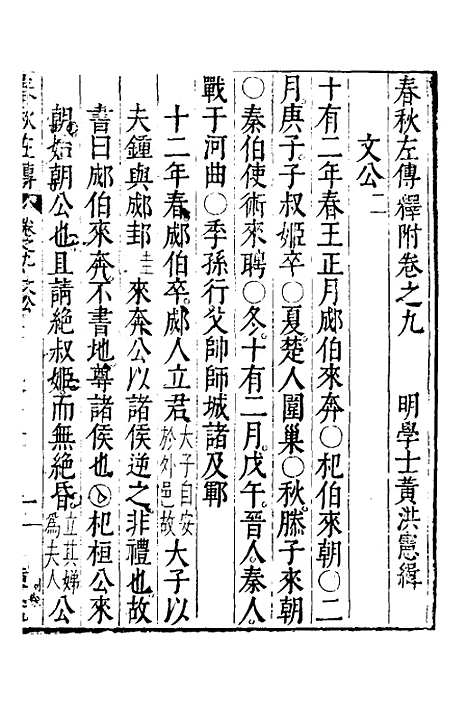 春秋左傳釋附卷之九　明學士黃洪憲緝
文公二
十有二年春王正月郕伯來奔〇杞伯來朝〇二
月庚子子叔姬卒〇夏楚人圍巢〇秋滕子來朝
〇秦伯使術來聘〇冬十有二月戊午晉人秦人
戰于河曲〇季孫行父帥師城諸及鄆
十二年春郕伯卒郕人立君大子自安於外邑故大子以
夫鍾與郕邽圭來奔公以諸侯逆之非禮也故
書曰郕伯來奔不書地尊諸侯也〇杞桓公來
朝始朝公也且請絕叔姬而無絕昏立其娣為夫人公
春秋左傳 卷之九 文公 一